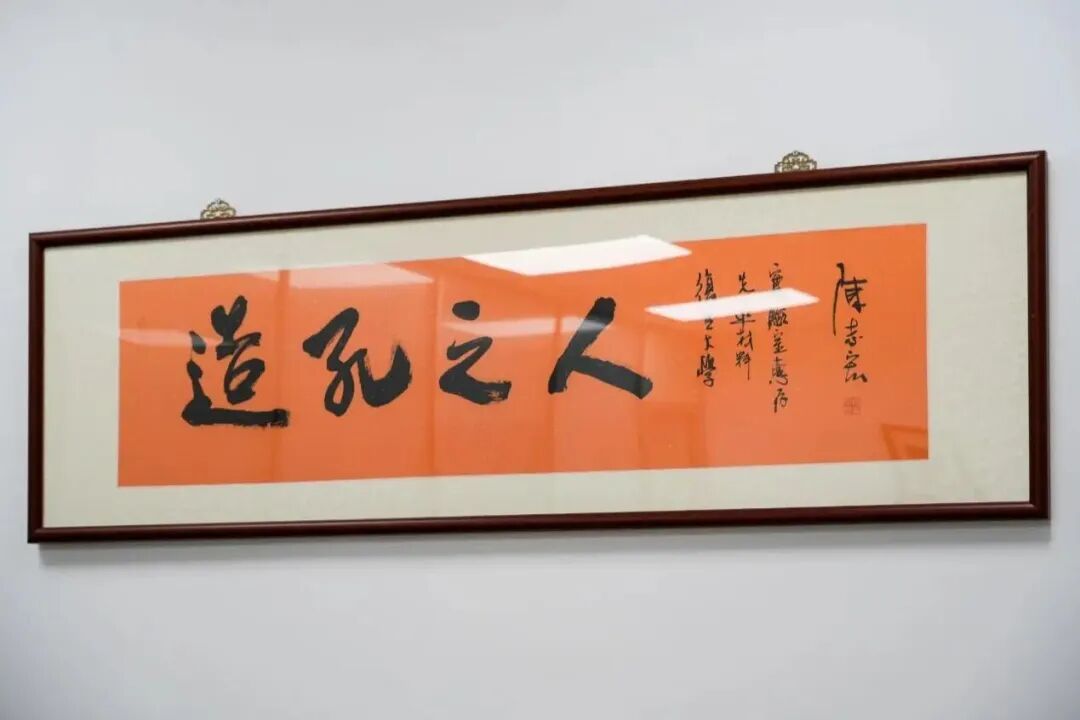 造孔之人
復旦大學
先進材料
實驗室惠存
陳志宏